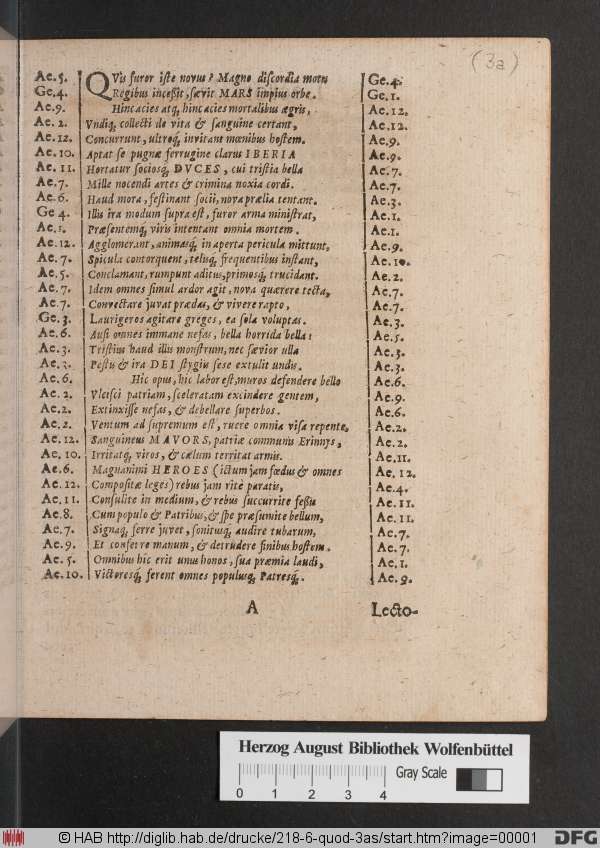 (3a)
Ae. 5. QVis furor iste novus? Magno discordia motu Ge. 4.
Ge. 4. Regibus inceßit, sævit MARS impius orbe. Ge. 1.
Ae. 9. Hinc acies atq; hinc acies mortalibus ægris, Ae. 12.
Ae. 2. Vndiq; collecti de vita & sanguine certant, Ae. 12.
Ae. 12. Concurrunt, ultroq; invitant mœnibus hostem. Ae. 9.
Ae. 10. Aptat se pugnæ ferrugine clarus IBERIA Ae. 9.
Ae. 11. Hortatur sociosq; DVCES, cui tristia bella Ae. 7.
Ae. 7. Mille nocendi artes & crimina noxia cordi. Ae. 7.
Ae. 6. Haud mora, festinant socii, nova prælia tentant. Ae. 3.
Ge 4. Illis ira modum supra est, furor arma ministrat, Ae. 1.
Ae. 1. Præsentemq; viris intentant omnia mortem. Ae. 1.
Ae. 12. Agglomerant, animasq; in aperta pericula mittunt, Ae. 9.
Ae. 7. Spicula contorquent, telisq; frequentibus instant, Ae. 10.
Ae. 5. Conclamant, rumpunt aditus, primosq; trucidant. Ae. 2.
Ae. 7. Idem omnes simul ardor agit, nova quærere tecta, Ae. 7.
Ae. 7. Convectare juvat prædas, & vivere rapto, Ae. 7.
Ge. 3. Laurigeros agitare greges, ea sola voluptas. Ae. 3.
Ae. 6. Ausi omnes immane nefas, bella horrida bella: Ae. 5.
Ae. 3. Tristius haud illis monstrum, nec sævior ulla Ae. 3.
Ae. 3. Pestis & ira DEI stygiis sese extulit undis. Ae. 3.
Ae. 6. Hic opus, hic labor est, muros defendere bello Ae. 6.
Ae. 2. Vlcisci patriam, sceleratam excindere gentem, Ae. 9.
Ae. 2. Extinxisse nefas, & debellare superbos. Ae. 6.
Ae. 2. Ventum ad supremum est, ruere omnia visa repente, Ae. 2.
Ae. 12. Sanguineus MAVORS, patriæ communis Erinnys, Ae. 2.
Ae. 10. Irritatq; viros, & cælum territat armis. Ae. 11.
Ae. 6. Magnanimi HEROES (ictum jam fœdus & omnes Ae. 12.
Ae. 12. Compositæ leges) rebus jam ritè paratis, Ae. 4.
Ae. 11. Consulite in medium, & rebus succurrite feßis Ae. 11.
Ae. 8. Cum populo & Patribus, & spe præsumite bellum, Ae. 11.
Ae. 7. Signaq; ferre juvet, sonitusq; audire tubarum, Ae. 7.
Ae. 9. Et conferre manum, & detrudere finibus hostem. Ae. 7.
Ae. 5. Omnibus hic erit unus honos, sua præmia laudi, Ae. 1.
Ae. 10. Victoresq; ferent omnes populusq; Patresq;. Ae. 9.
A Lecto-
Herzog August Bibliothek Wolfenbüttel
Gray Scale
0 1 2 3 4
© HAB http://diglib.hab.de/drucke/218-6-quod-3as/start.htm?image=00001
DFG